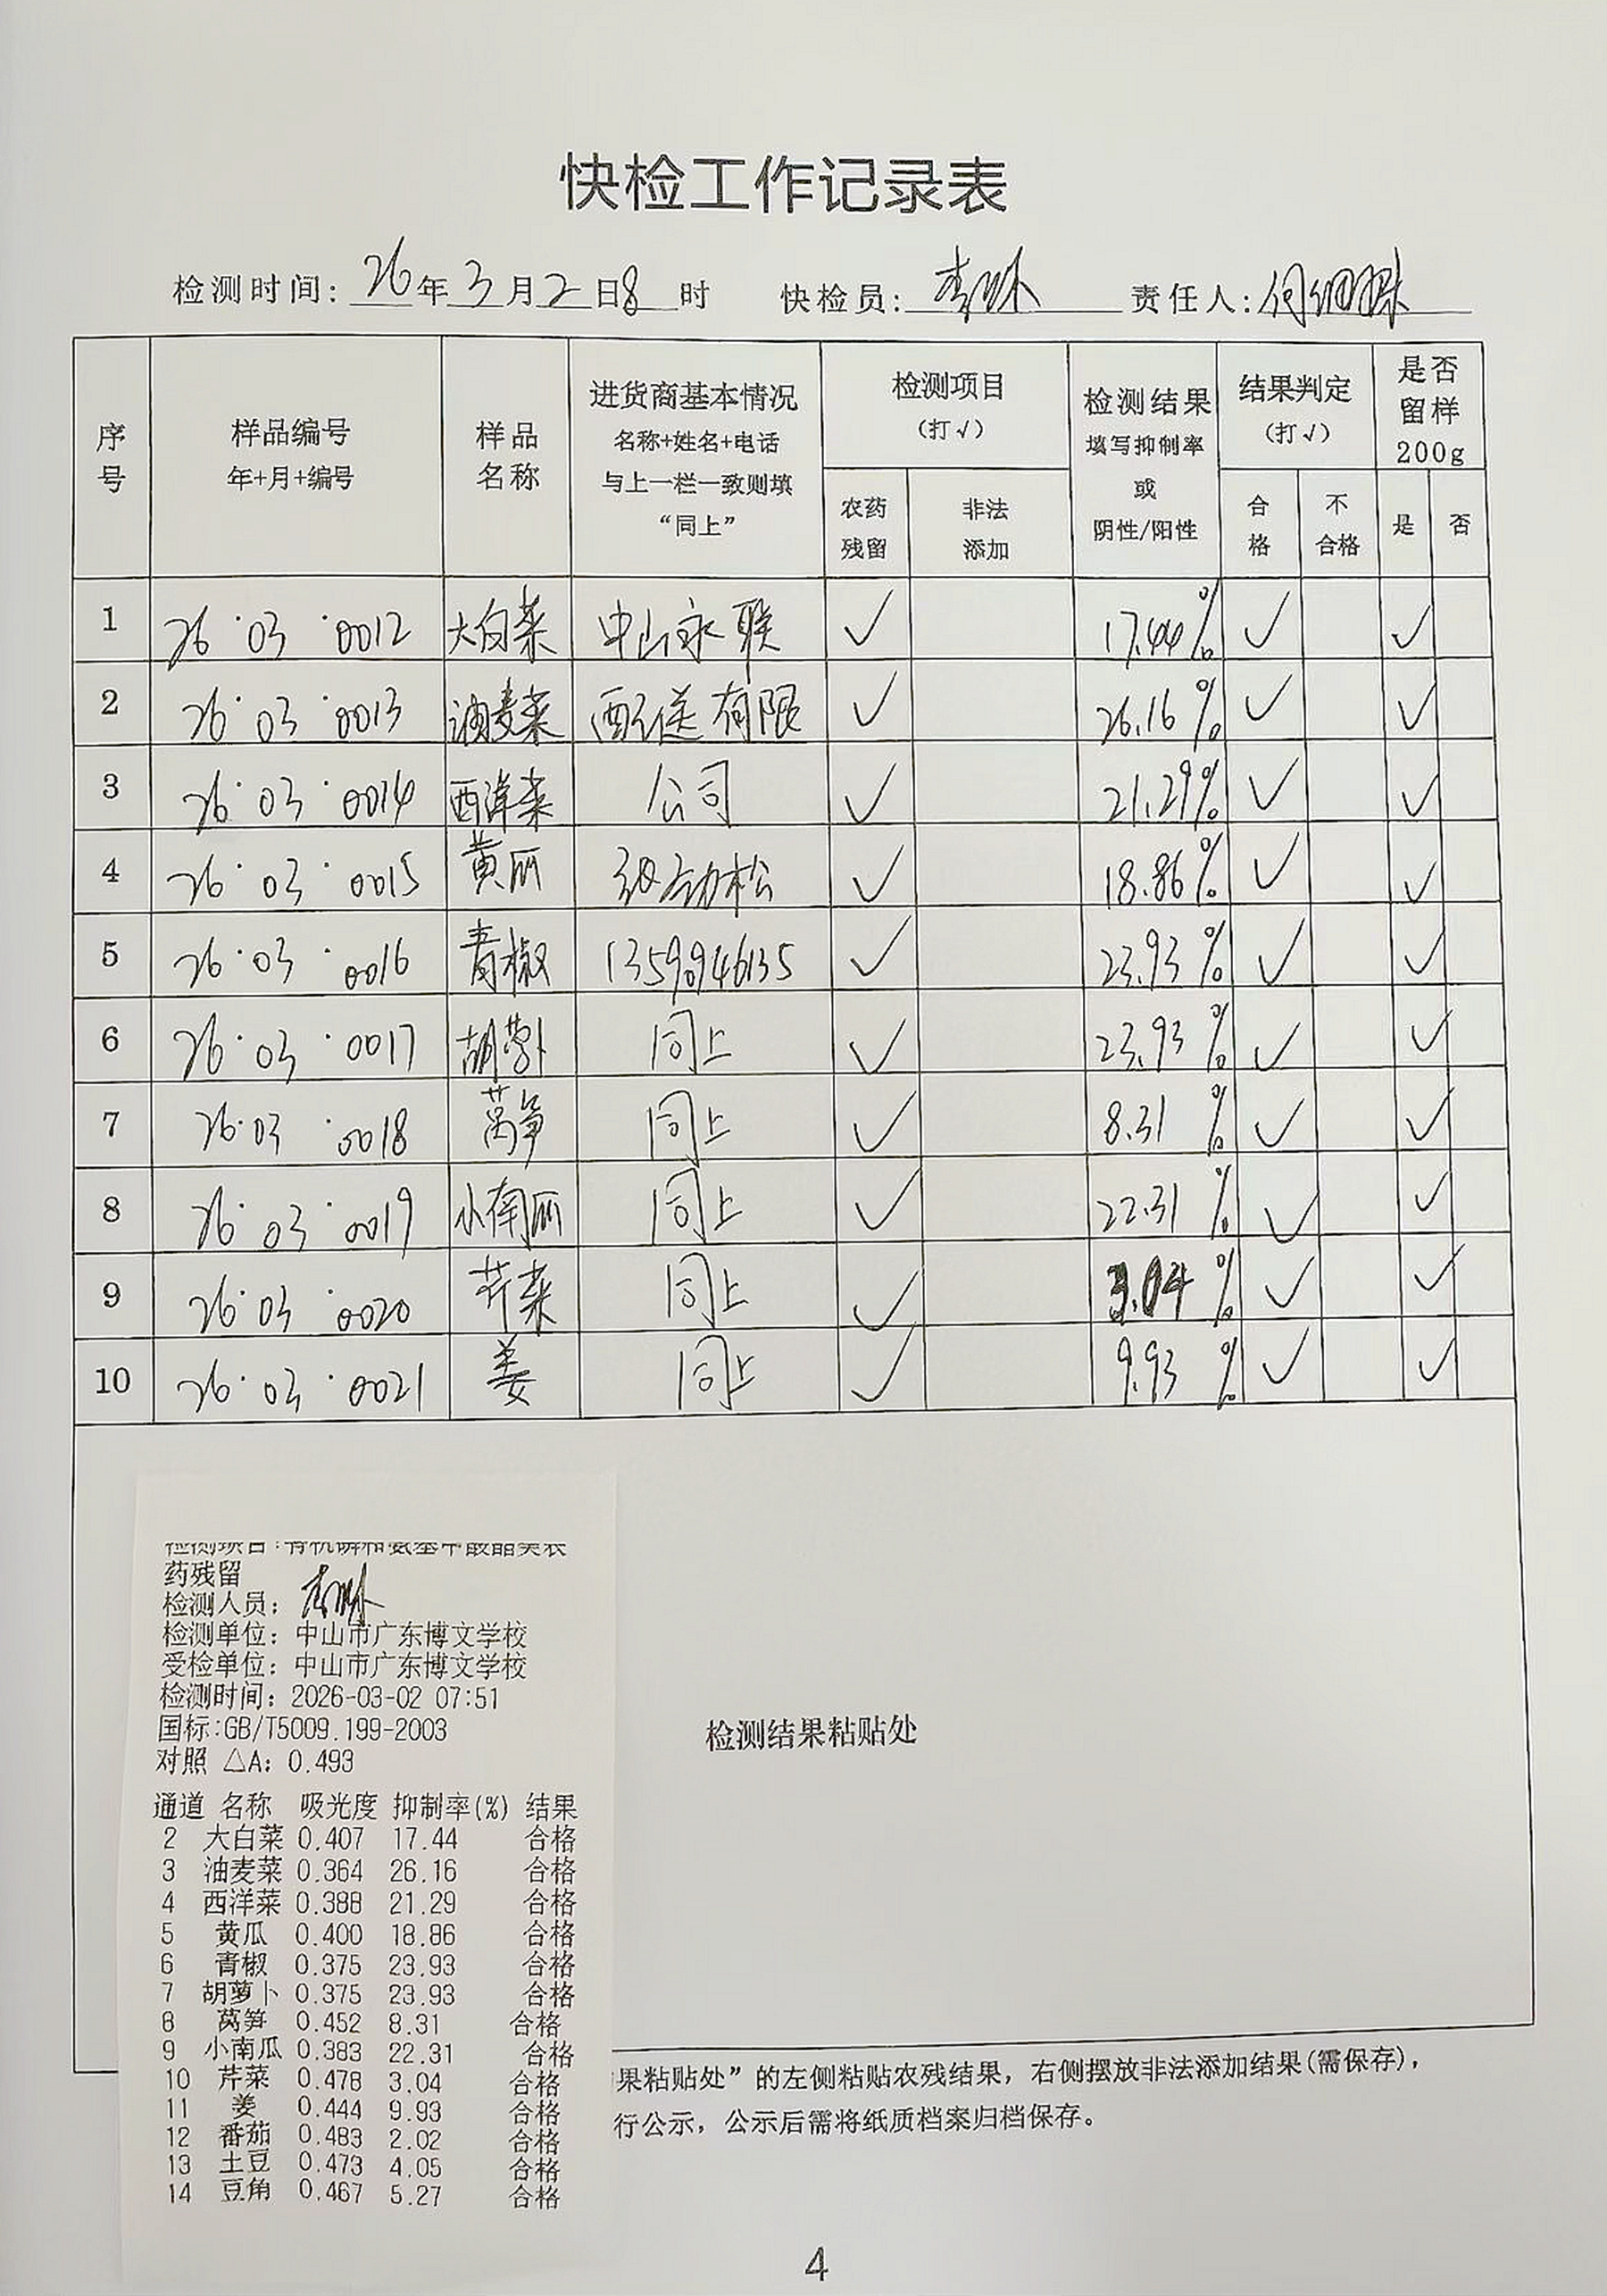 快检工作记录表
检测时间: 26年3月2日8时 快检员: 责任人:何
序号 样品编号 年+月+编号 样品名称 进货商基本情况 名称+姓名+电话 与上一栏一致则填“同上” 检测项目(打√) 农药残留 非法添加 检测结果 填写抑制率或阴性/阳性 结果判定(打√) 合格 不合格 是否留样200g 是 否
1 26·03·0012 大白菜 中山永联 ✓ 17.44% ✓ ✓
2 26·03·0013 油麦菜 配送有限 ✓ 26.16% ✓ ✓
3 26·03·0014 西洋菜 公司 ✓ 21.29% ✓ ✓
4 26·03·0015 黄瓜 劲松 ✓ 18.86% ✓ ✓
5 26·03·0016 青椒 ✓ 23.93% ✓ ✓
6 26·03·0017 胡萝卜 同上 ✓ 23.93% ✓ ✓
7 26·03·0018 莴笋 同上 ✓ 8.31% ✓ ✓
8 26·03·0019 小南瓜 同上 ✓ 22.31% ✓ ✓
9 26·03·0020 芹菜 同上 ✓ 3.04% ✓ ✓
10 26·03·0021 姜 同上 ✓ 9.93% ✓ ✓
检测项目:有机磷和氨基甲酸酯类农
药残留
检测人员:
检测单位: 中山市广东博文学校
受检单位: 中山市广东博文学校
检测时间: 2026-03-02 07:51
国标:GB/T5009.199-2003
对照 △A: 0.493
检测结果粘贴处
通道 名称 吸光度 抑制率(%) 结果
2 大白菜 0.407 17.44 合格
3 油麦菜 0.364 26.16 合格
4 西洋菜 0.388 21.29 合格
5 黄瓜 0.400 18.86 合格
6 青椒 0.375 23.93 合格
7 胡萝卜 0.375 23.93 合格
8 莴笋 0.452 8.31 合格
9 小南瓜 0.383 22.31 合格
10 芹菜 0.478 3.04 合格
11 姜 0.444 9.93 合格
12 番茄 0.483 2.02 合格
13 土豆 0.473 4.05 合格
14 豆角 0.467 5.27 合格
果粘贴处”的左侧粘贴农残结果，右侧摆放非法添加结果(需保存)，
行公示，公示后需将纸质档案归档保存。
4